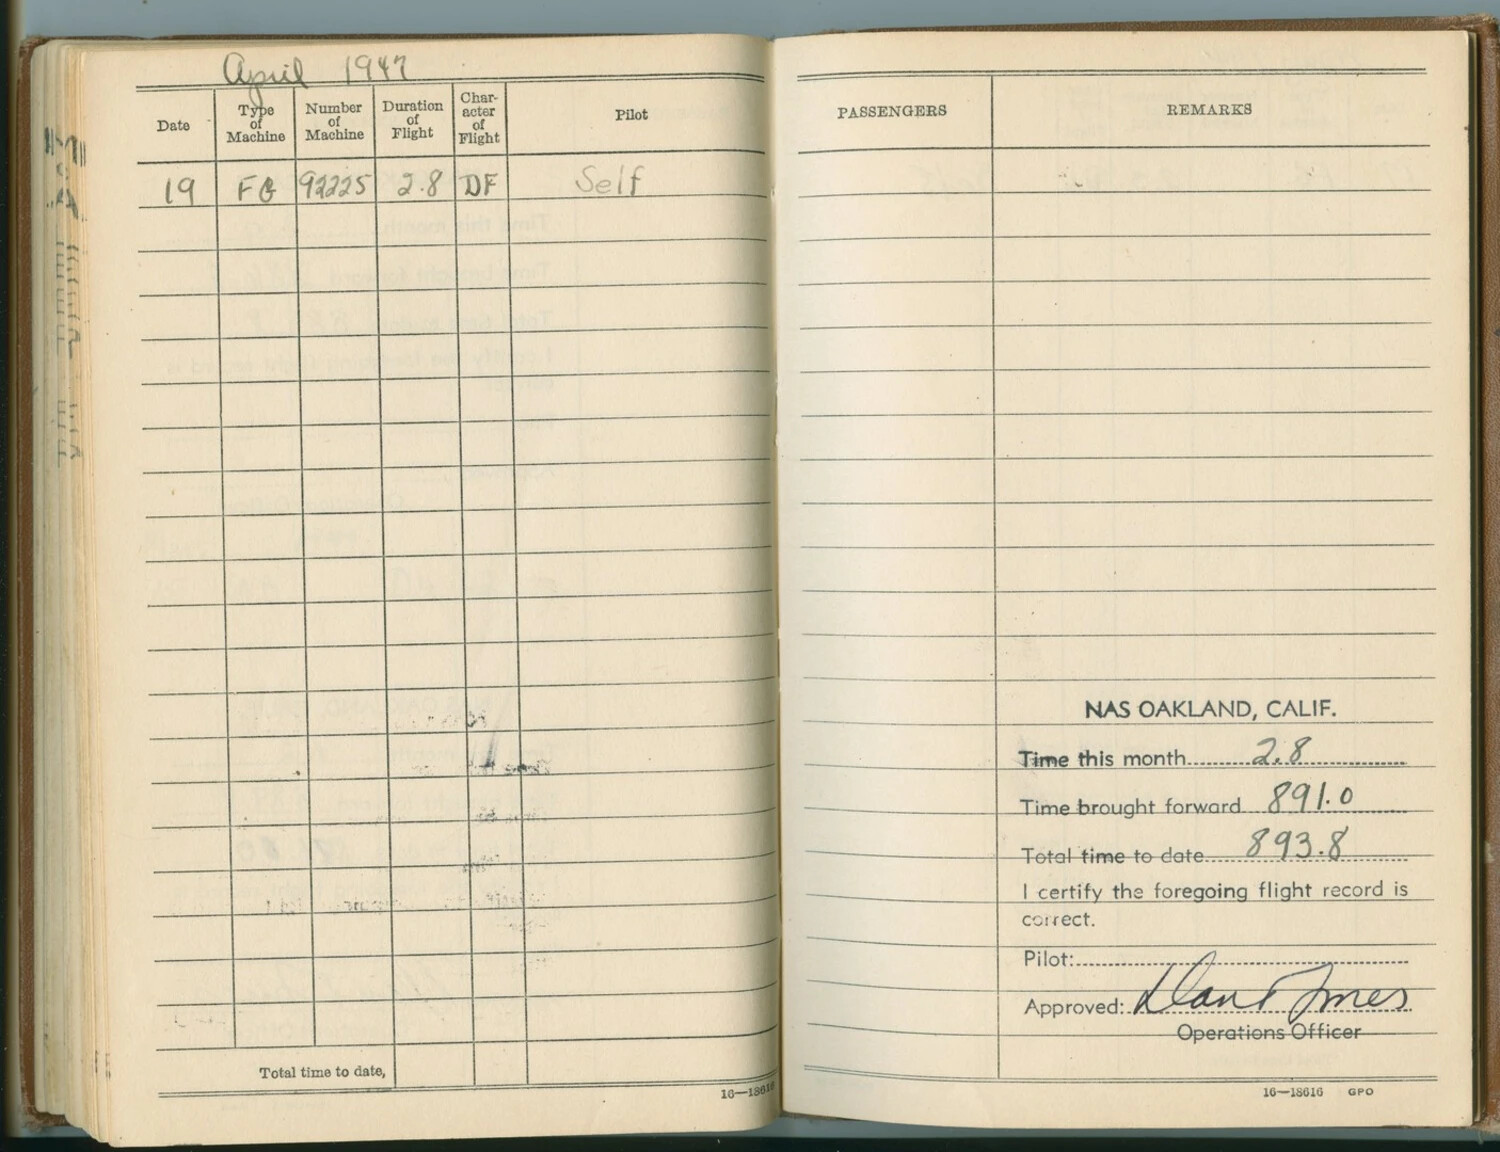 April 1947
Date Type of Machine Number of Machine Duration of Flight Char- acter of Flight Pilot
19 FG 92225 2.8 DF Self
Total time to date,
16—18616
PASSENGERS REMARKS
NAS OAKLAND, CALIF.
Time this month 2.8
Time brought forward 891.0
Total time to date 893.8
I certify the foregoing flight record is
correct.
Pilot:
Approved:
Operations Officer
16—18616 GPO